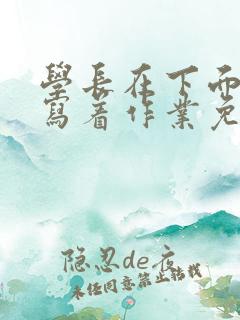 學長在下面
寫着作業免
隐忍de夜
未经同意禁止转载